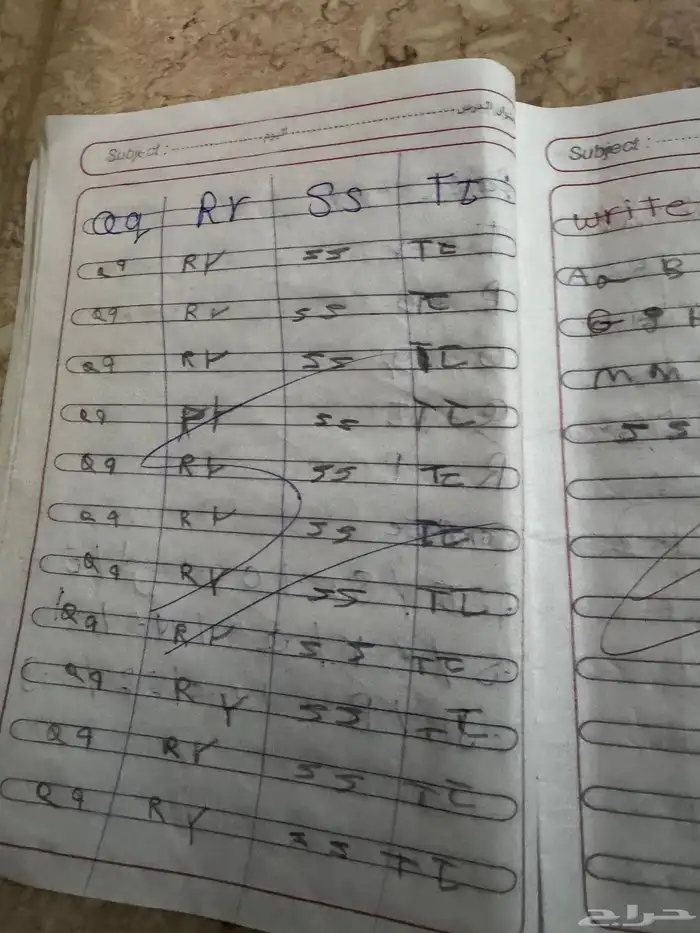 Subject : اليوم عنوان الدرس
Qq Rr Ss Tt
Qq Rr Ss Tt
Qq Rr Ss Tt
Qq Rr Ss Tt
Qq Rr Ss Tt
Qq Rr Ss Tt
Qq Rr Ss Tt
Qq Rr Ss Tt
Qq Rr Ss Tt
Qq Rr Ss Tt
Qq Rr Ss Tt
Qq Rr Ss Tt
Subject :
write
Aa B
G g H
M m
S s
حراج